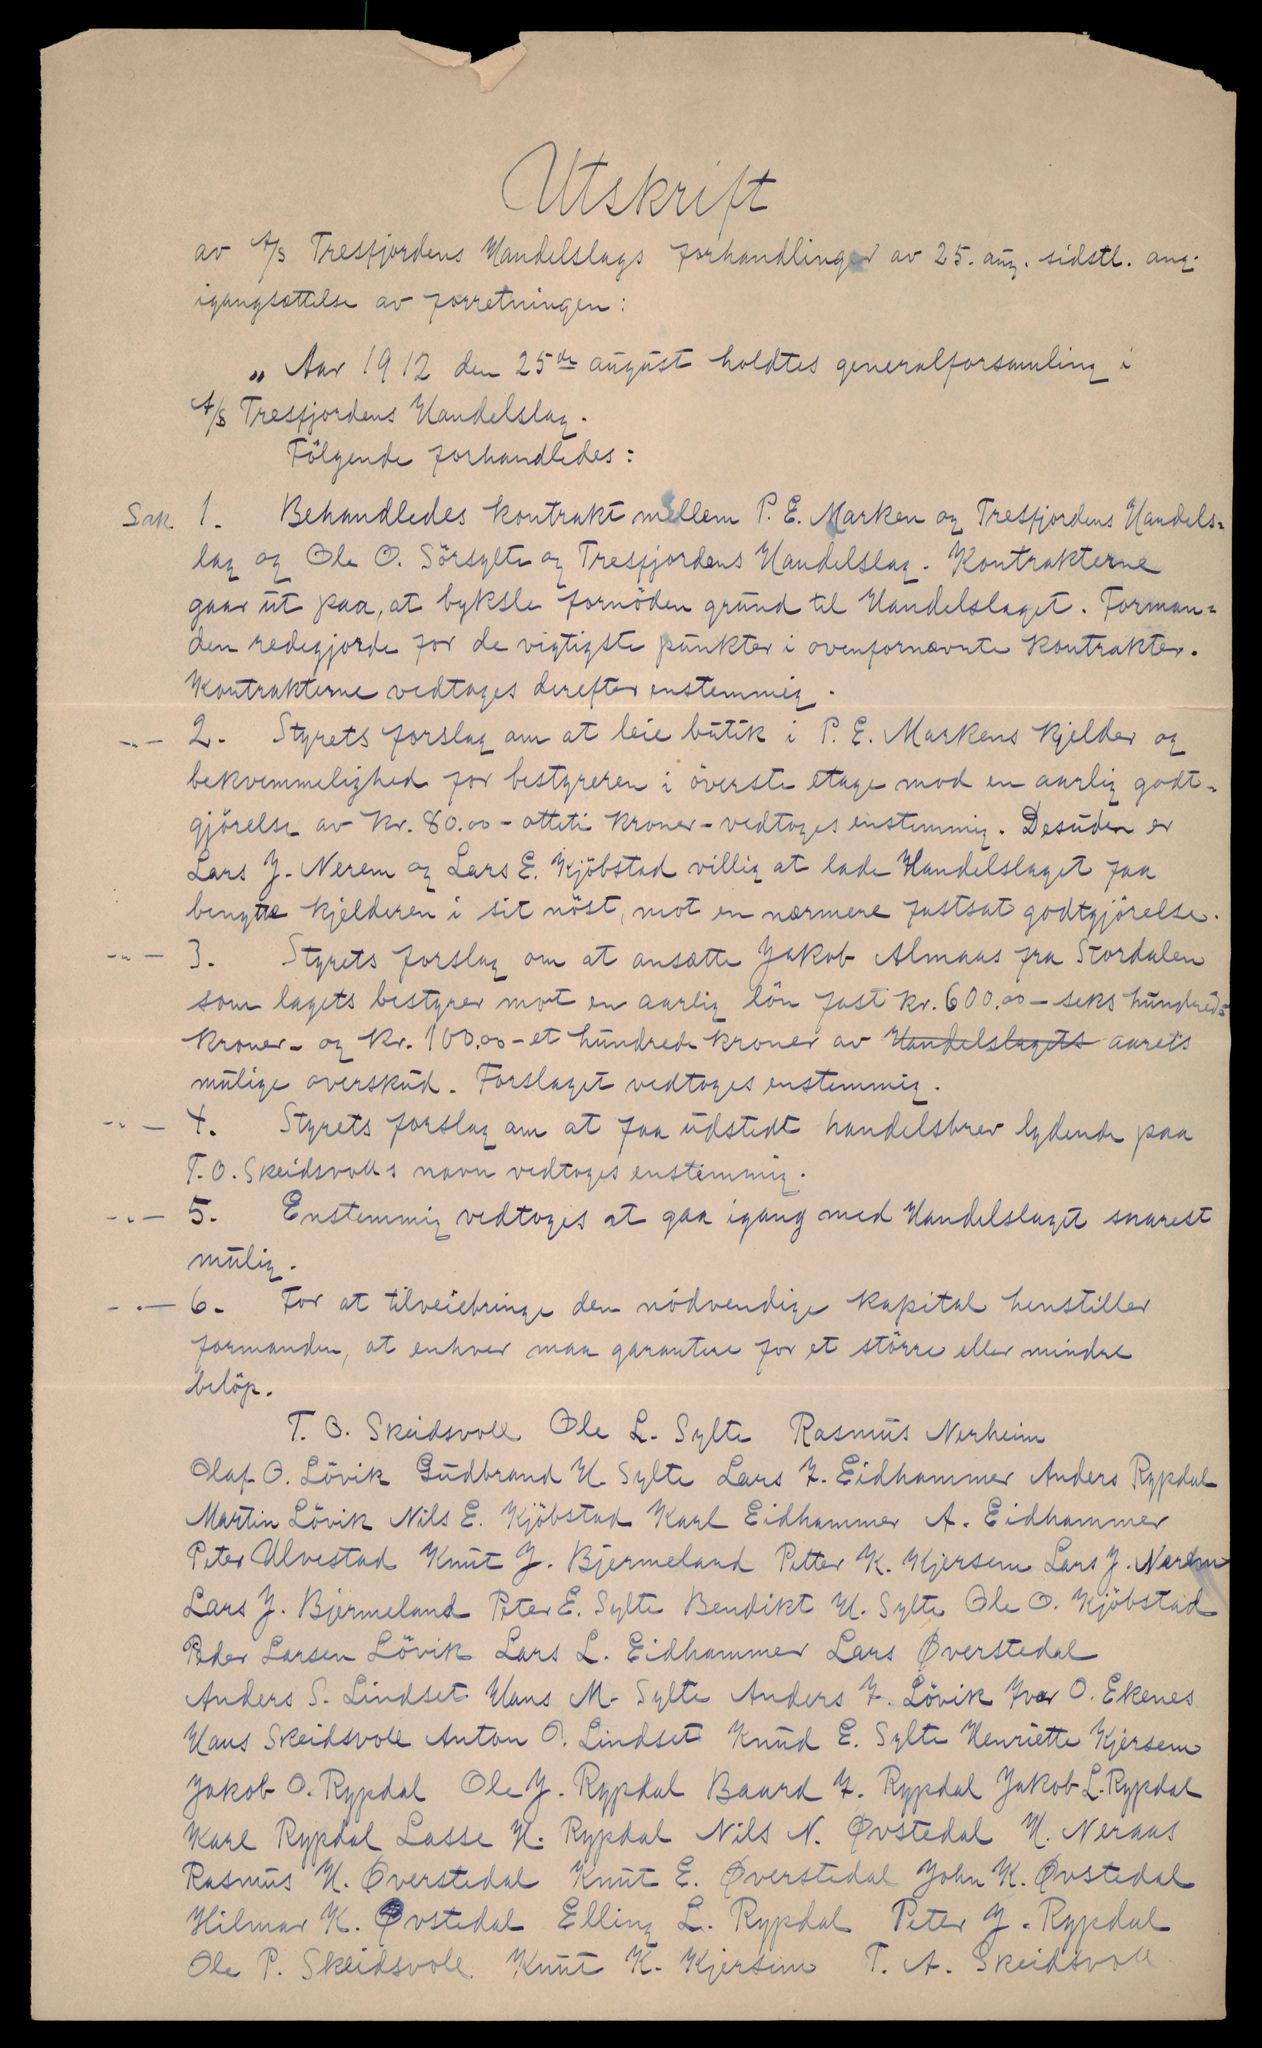 Utskrift
av A/s Tresfjordens Handelslags forhandlinger av 25. aug. sidstl. ang.
igangsættelse av forretningen:
„ Aar 1912 den 25de august holdtes generalforsamling i
A/s Tresfjordens Handelslag.
Fölgende forhandledes:
Sak 1. Behandledes kontrakt mellem P. E. Marken og Tresfjordens Handels=
lag og Ole O. Sörsylte og Tresfjordens Handelslag. Kontrakterne
gaar ut paa, at byksle fornöden grund til Handelslaget. Forman=
den redegjorde for de vigtigste punkter i ovenfornævnte kontrakter.
Kontrakterne vedtoges derefter enstemmig.
-"- 2. Styrets forslag om at leie butik i P. E. Markens kjelder og
bekvemmelighed for bestyreren i överste etage mod en aarlig godt=
gjörelse av kr. 80.00 - otteti kroner - vedtoges enstemmig. Desuden er
Lars J. Nerem og Lars E. Kjöbstad villig at lade Handelslaget faa
benytte kjelderen i sit nöst, mot en nærmere fastsat godtgjörelse.
-"- 3. Styrets forslag om at ansætte Jakob Almaas fra Stordalen
som lagets bestyrer mot en aarlig lön fast kr. 600.00 - seks hundrede
kroner - og kr. 100.00 - et hundrede kroner av Handelslagets aarets
mulige overskud. Forslaget vedtoges enstemmig.
-"- 4. Styrets forslag om at faa udstedt handelsbrev lydende paa
T. O. Skeidsvolls navn vedtoges enstemmig.
-"- 5. Enstemmig vedtoges at gaa igang med Handelslaget snarest
mulig.
-"- 6. For at tilveiebringe den nödvendige kapital henstiller
formanden, at enhver maa garantere for et större eller mindre
belöp.
T. O. Skeidsvoll Ole L. Sylte Rasmus Nerheim
Olaf O. Lövik Gudbrand H. Sylte Lars K. Eidhammer Anders Rypdal
Martin Lövik Nils E. Kjöbstad Karl Eidhammer A. Eidhammer
Peter Ulvestad Knut J. Bjermeland Petter K. Kjersem Lars J. Nerem
Lars J. Bjermeland Peter E. Sylte Bendikt H. Sylte Ole O. Kjöbstad
Peder Larsen Lövik Lars L. Eidhammer Lars Øverstedal
Anders S. Lindset Hans M. Sylte Anders K. Lövik Iver O. Ekenes
Hans Skeidsvoll Anton O. Lindset Knud E. Sylte Henriette Kjersem
Jakob O. Rypdal Ole J. Rypdal Baard K. Rypdal Jakob L. Rypdal
Karl Rypdal Lasse H. Rypdal Nils N. Øvstedal H. Neraas
Rasmus H. Øverstedal Knut E. Øverstedal John K. Øvstedal
Hilmar K. Øvstedal Elling L. Rypdal Peter J. Rypdal
Ole P. Skeidsvoll Knut K. Kjersem T. A. Skeidsvoll